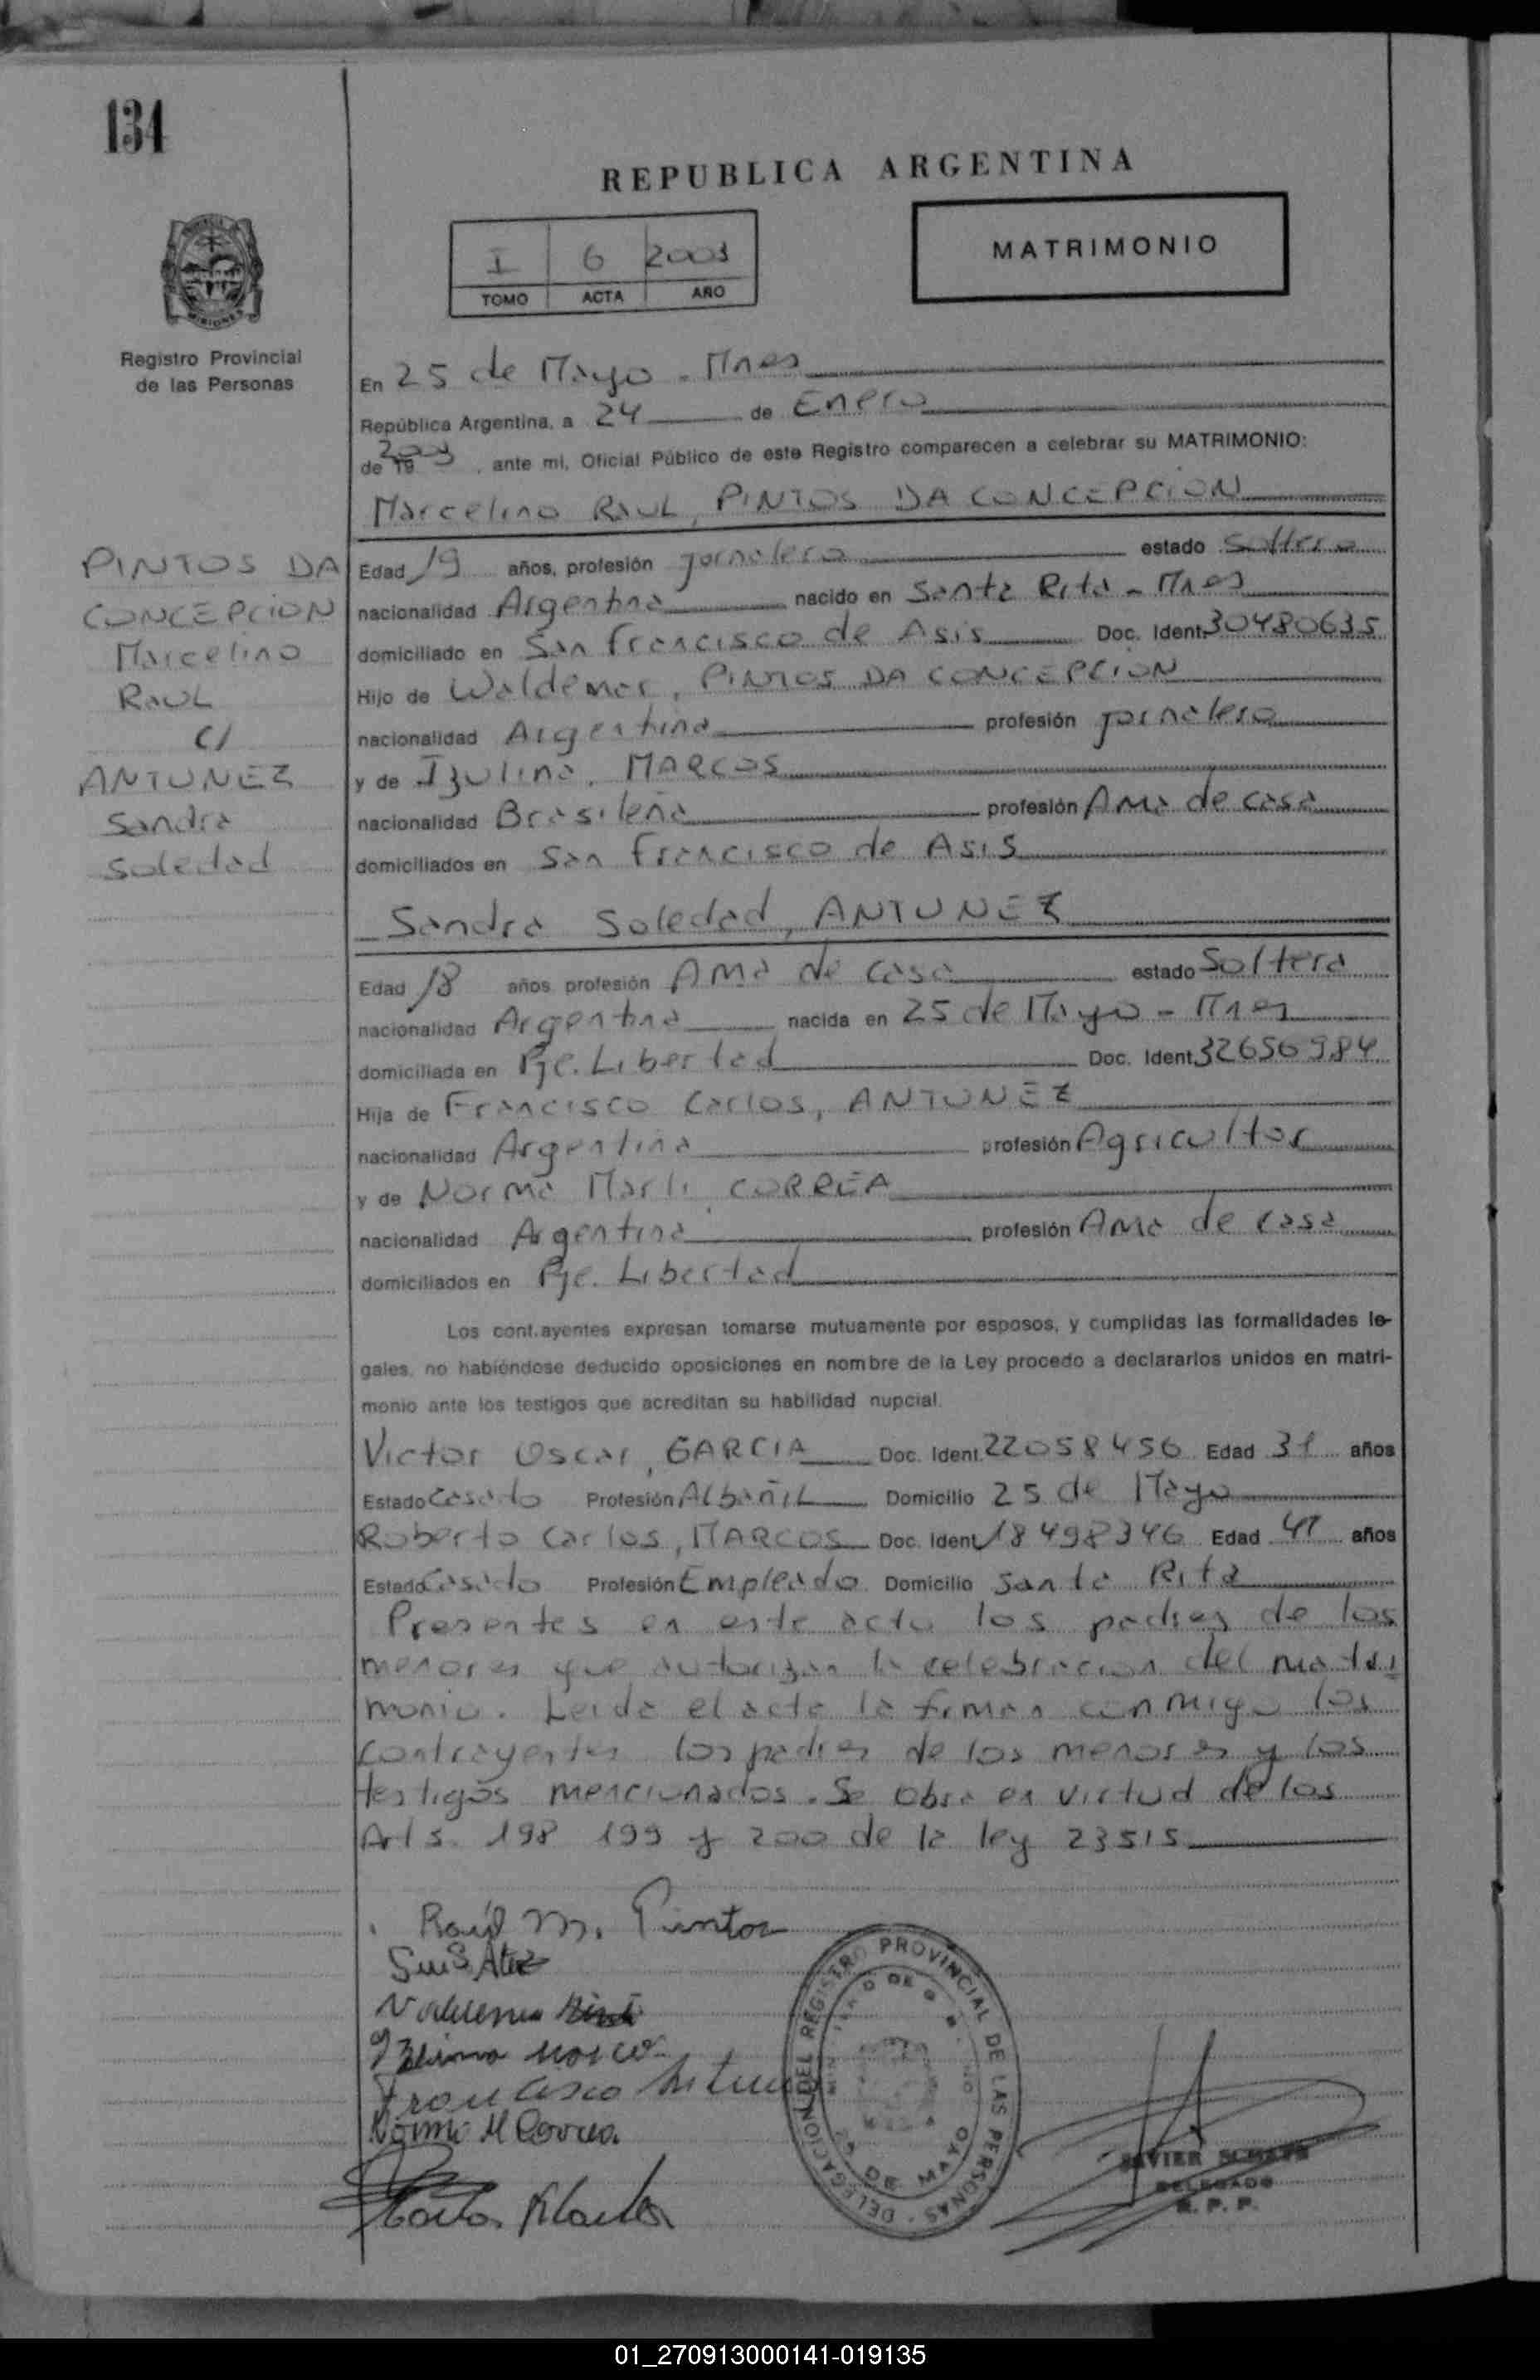 134
REPUBLICA ARGENTINA
I 6 2003
TOMO ACTA AÑO
MATRIMONIO
MISIONES
Registro Provincial
de las Personas
En 25 de Mayo - Mnes
República Argentina, a 24 de Enero
de 19 2003, ante mi, Oficial Público de este Registro comparecen a celebrar su MATRIMONIO:
Marcelino RAUL, PINTOS DA CONCEPCION
PINTOS DA
CONCEPCION
Marcelino
RAUL
C/
ANTUNEZ
Sandra
Soledad
Edad 19 años, profesión jornalero estado soltero
nacionalidad Argentina nacido en Santa Rita - Mnes
domiciliado en San Francisco de Asis Doc. Ident. 30480635
Hijo de Waldemar, PINTOS DA CONCEPCION
nacionalidad Argentina profesión jornalero
y de Izulina, MARCOS
nacionalidad Brasileña profesión Ama de casa
domiciliados en San Francisco de Asis
Sandra Soledad, ANTUNEZ
Edad 18 años profesión Ama de casa estado Soltera
nacionalidad Argentina nacida en 25 de Mayo - Mnes
domiciliada en Pje. Libertad Doc. Ident. 32656984
Hija de Francisco Carlos, ANTUNEZ
nacionalidad Argentina profesión Agricultor
y de Norma Marli, CORREA
nacionalidad Argentina profesión Ama de casa
domiciliados en Pje. Libertad
Los cont.ayentes expresan tomarse mutuamente por esposos, y cumplidas las formalidades le-
gales, no habiéndose deducido oposiciones en nombre de la Ley procedo a declararlos unidos en matri-
monio ante los testigos que acreditan su habilidad nupcial.
Victor Oscar, GARCIA Doc. Ident. 22058456 Edad 31 años
Estado Casado Profesión Albañil Domicilio 25 de Mayo
Roberto Carlos, MARCOS Doc. Ident. 18498346 Edad 41 años
Estado Casado Profesión Empleado Domicilio Santa Rita
Presentes en este acto los padres de los
menores que autorizan la celebracion del matri
monio. Leida el acta la firman conmigo los
contrayentes los padres de los menores y los
testigos mencionados. Se obra en virtud de los
Arts. 198 199 y 200 de la ley 23515
Raúl M. Pintos
Francisco Antunez
Norma M Correa
DELEGACION DEL REGISTRO PROVINCIAL DE LAS PERSONAS
25 DE MAYO
DELEGADO
R. P. P.
01_270913000141-019135